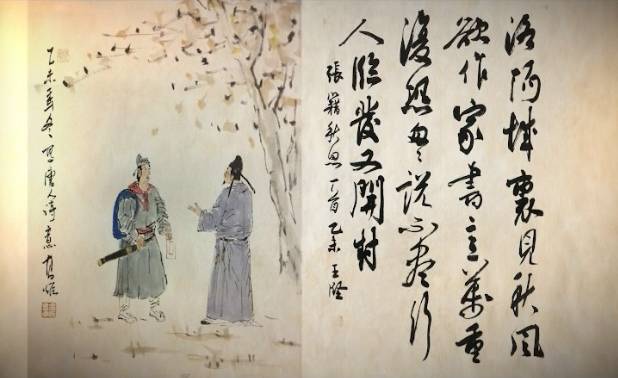 洛陽城裏見秋風
欲作家書意萬重
復恐匆匆說不盡行
人臨發又開封
張籍秋思一首乙未王
乙未年冬寫唐人詩意